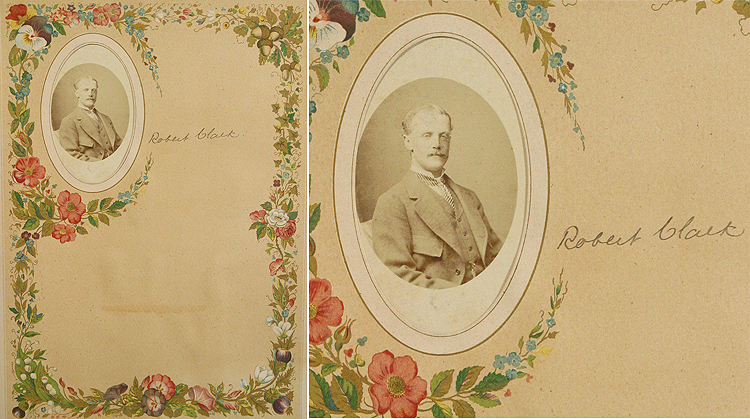 Robert Clark
Robert Clark